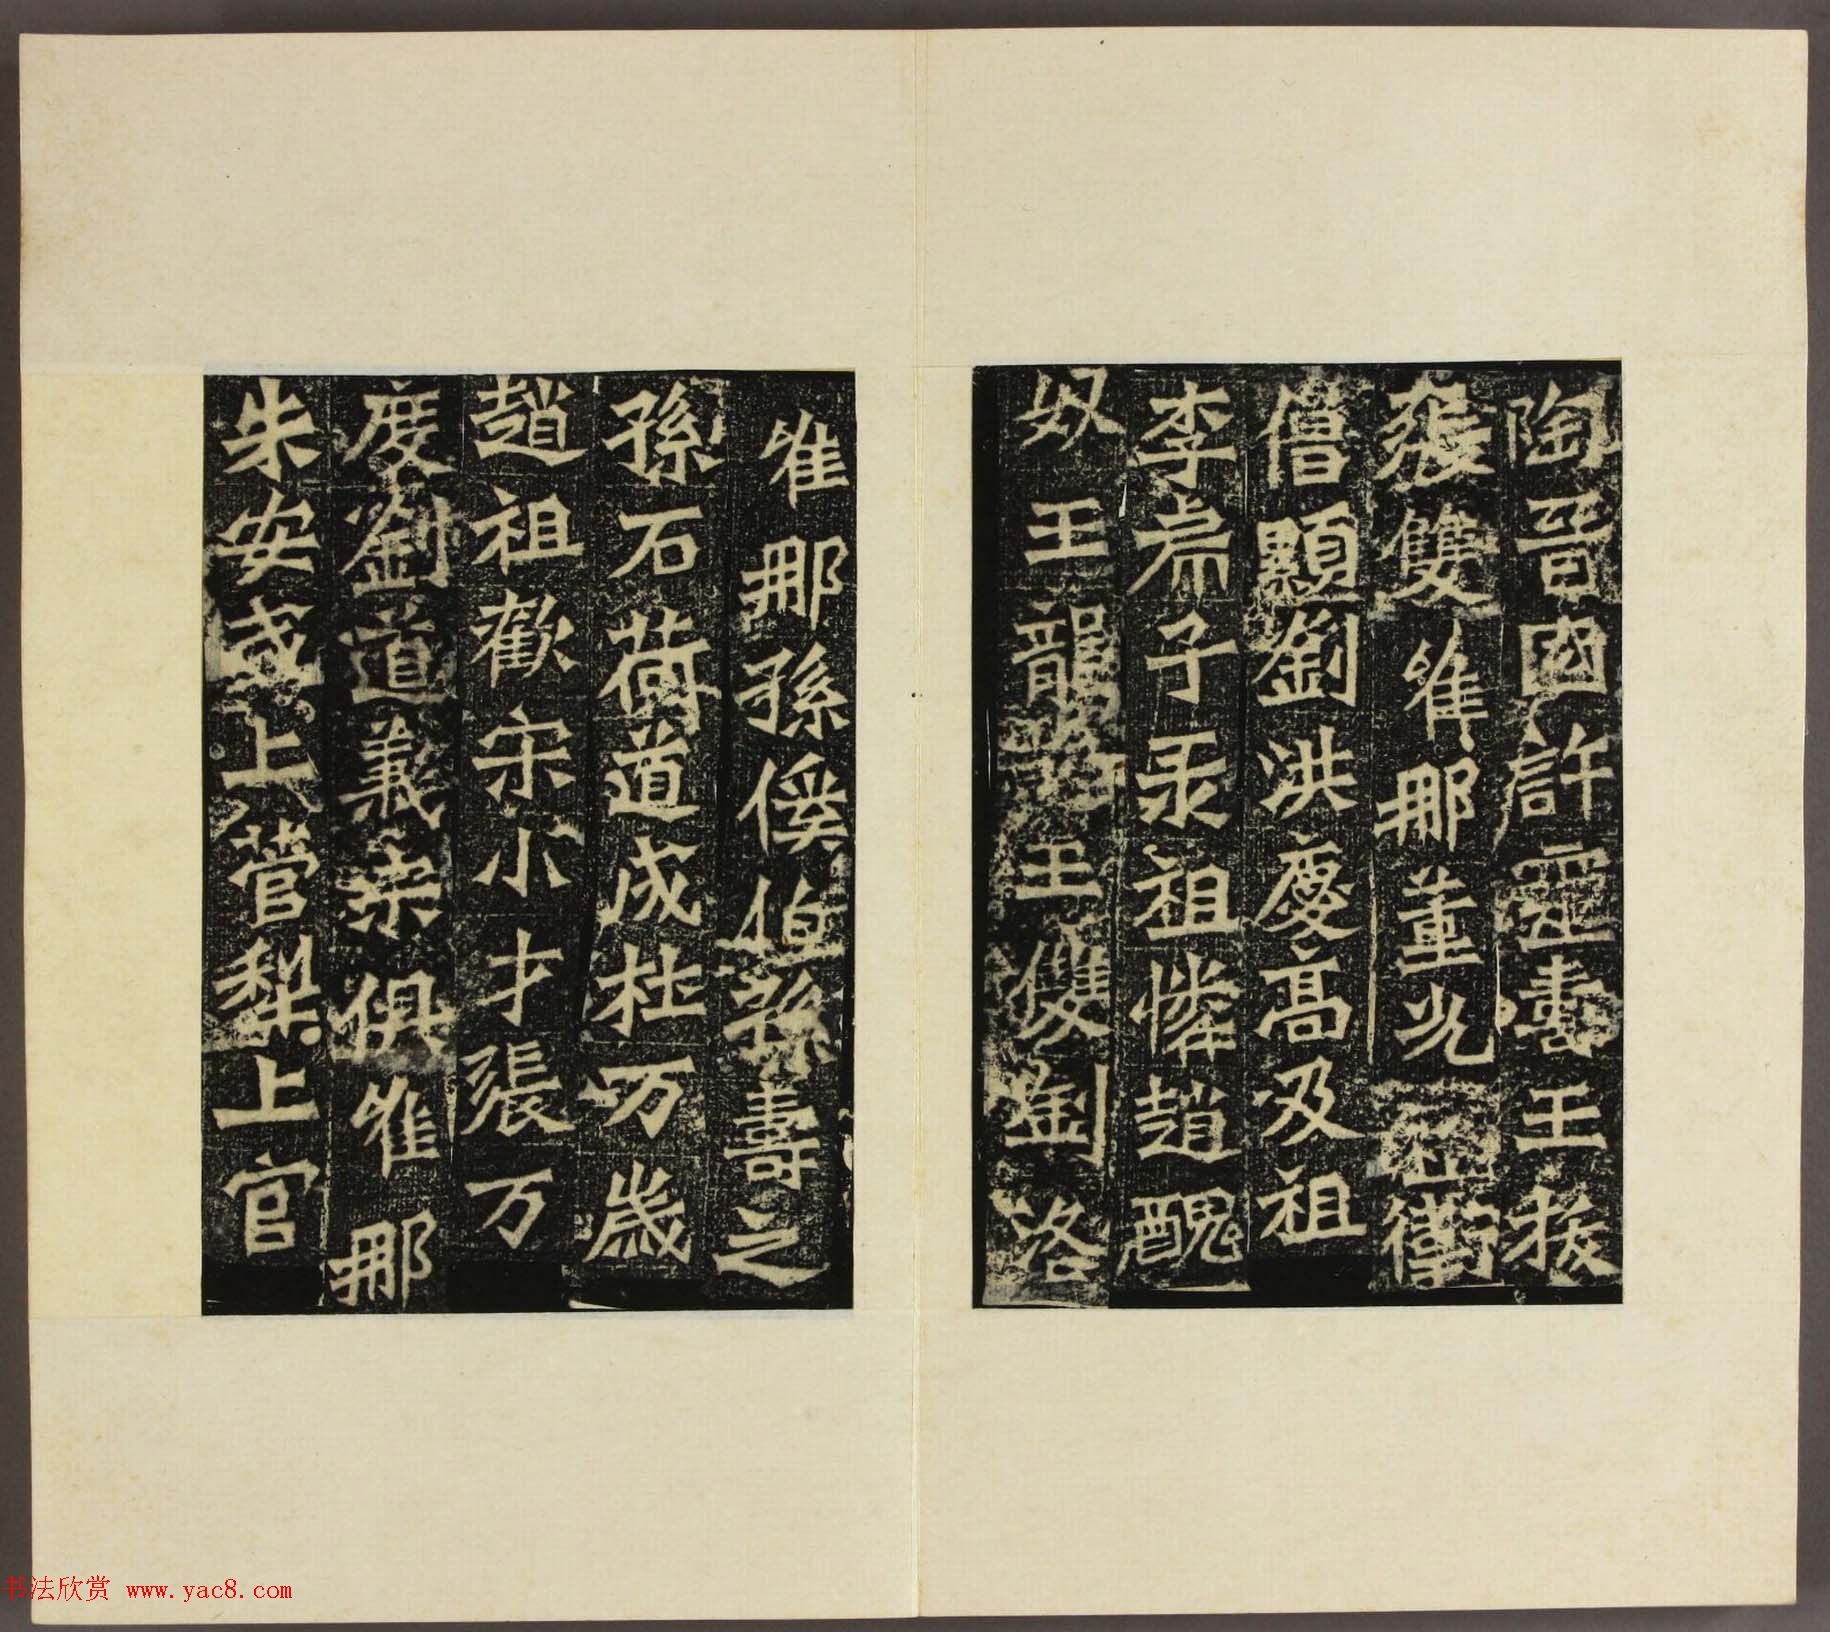 陶晉國許靈壽王拔
張雙唯那董光祖衛
僧顯劉洪慶高及祖
李耑子永祖憐趙醜
奴王龍王雙劉洛
唯那孫傒伯孫壽之
孫石荷道成杜万歲
趙祖歡宋小才張万
度劉道義宋俱唯那
朱安上管犁上官
书法欣赏 www.yac8.com